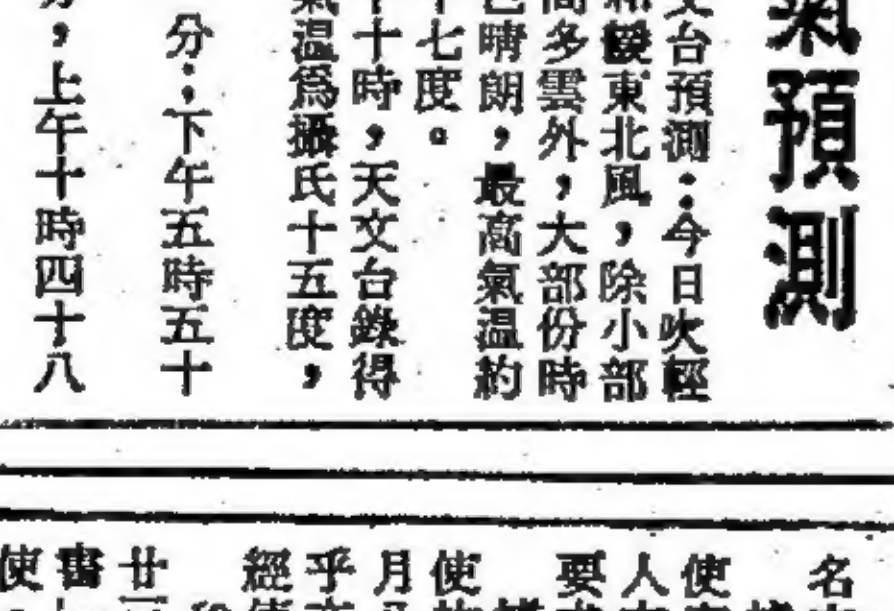 氣預測
文台預測：今日吹輕
和緩東北風，除小部
間多雲外，大部份時
晴朗，最高氣溫約
十七度。
十時，天文台錄得
氣溫爲攝氏十五度，
分；下午五時五十
，上午十時四十八
名
使
人
要
使
月
乎
經
廿
書
使